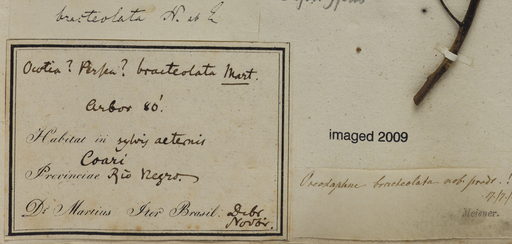 bracteolata N. et E
Ocotea? Persea? bracteolata Mart.
Arbor 80'.
Habitat in sylvis aeternis
Coari
Provinciae Rio Negro.
Dr Martius Iter Brasil. Debr
Novbr.
imaged 2009
Oreodaphne bracteolata nob. prodr.!
Meisner.